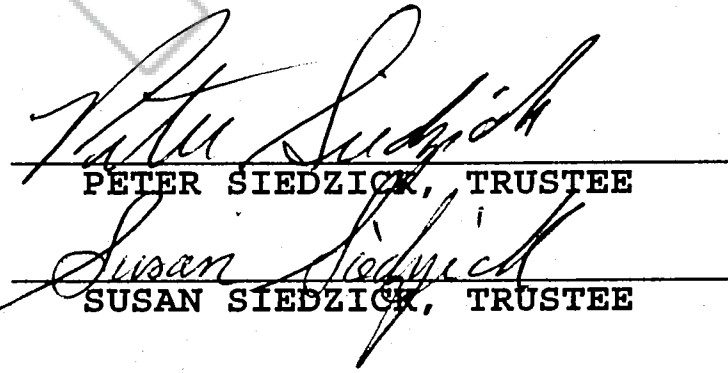 Peter Siedzick
PETER SIEDZICK, TRUSTEE
Susan Siedzick
SUSAN SIEDZICK, TRUSTEE